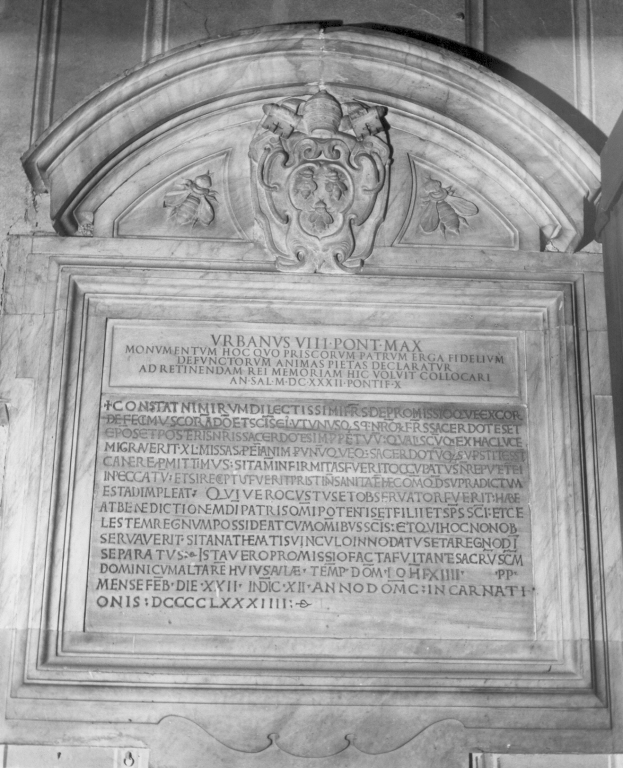 VRBANVS VIII·PONT·MAX
MONVMENTVM HOC QVO PRISCORVM PATRVM ERGA FIDELIVM
DEFVNCTORVM ANIMAS PIETAS DECLARATVR
AD RETINENDAM REI MEMORIAM HIC VOLVIT COLLOCARI
AN·SAL·M·DC·XXXII·PONTIF·X
+CONSTAT NIMIRVM DILECTISSIMI FRS DE PROMISSIOQVE EX COR
DE FECIMVS CORA DO ET SCIS EI VT VN VSQ
ET POSTERIS NRIS SACERDOTES IMPPETVV: QVALISCVQ EX HAC LVCE
MIGRAVERIT·XL·MISSAS·P EI ANIM P VNVQVEQ: SACERDOTV
CANERE·PMITTIMVS: SITAM INFIRMITAS FVERIT OCCVPATVS
IN PECCATV: ET SI RECEPTVS FVERIT PRISTIN SANITA HEC OMO D SVPRADICTVM
EST ADIMPLEAT: QVI VERO CVSTVS ET OBSERVATOR FVERIT HABE
AT BENEDICTIONEM DI PATRIS OMIPOTENIS ET FILII ET SPS SCI: ET CE
LESTEM REGNVM POSSIDEAT CVM OMIBVS SCIS: ET QVI HOC NON OB
SERVAVERIT·SIT ANATHEMATIS VINCVLO INNODATVS ET A REGNO DI
SEPARATVS:- ISTA VERO PROMISSIO FACTA FVIT ANTE SACRVSCM
DOMINICVM ALTARE HVIVS AVLAE· TEMP·DOM·IOH·XIIII· PP·
MENSE FEB·DIE·XXII· INDIC·XII·ANNO DOMC: INCARNATI·
ONIS: DCCCCLXXXIIII: